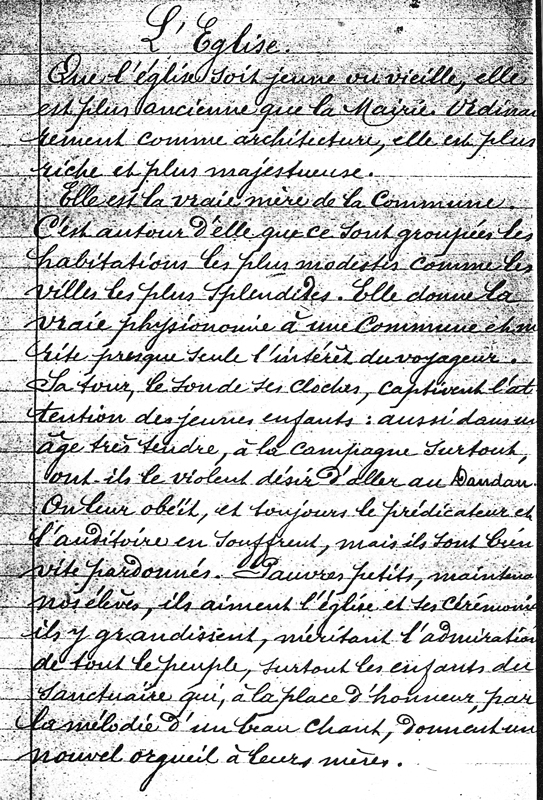 L'Eglise.
Que l'église soit jeune ou vieille, elle
est plus ancienne que la Mairie. Ordinai
rement comme architecture, elle est plus
riche et plus majestueuse.
Elle est la vraie mère de la Commune.
C'est autour d'elle que ce sont groupées les
habitations les plus modestes comme les
villes les plus splendides. Elle donne la
vraie physionomie à une Commune et m
rite presque seule l'intérêt du voyageur.
Sa tour, le son de ses cloches, captivent l'at
tention des jeunes enfants : aussi dans un
âge très tendre, à la campagne surtout,
ont-ils le violent désir d'aller au Dandan.
On leur obéit, et toujours le prédicateur et
l'auditoire en souffrent, mais ils sont bien
vite pardonnés. Pauvres petits, maintena
nos élèves, ils aiment l'église et ses cérémonie
ils y grandissent, méritant l'admiration
de tout le peuple, surtout les enfants du
sanctuaire qui, à la place d'honneur, par
la mélodie d'un beau chant, donnent un
nouvel orgueil à leurs mères.